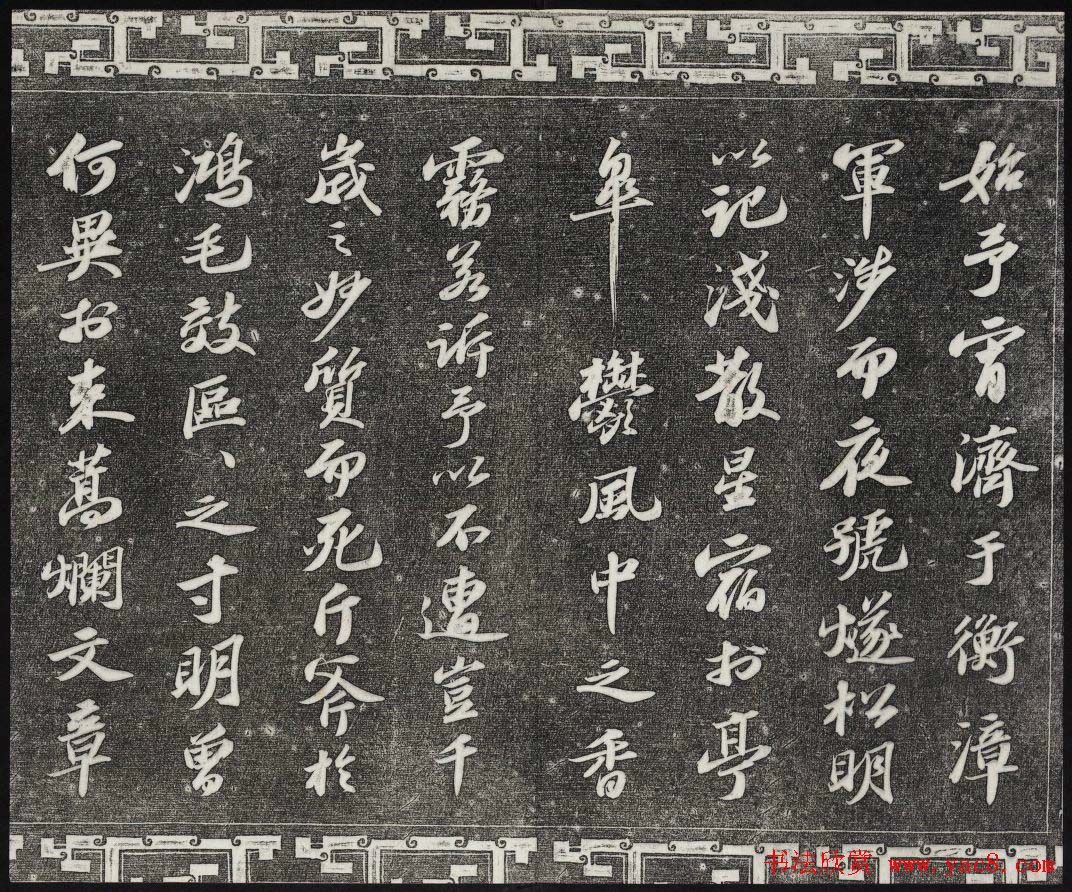 始予宵濟于衡漳
軍涉而夜號燧松明
以記淺散星宿於亭
皐鬱風中之香
霧若訴予以不遭豈千
歲之妙質而死斤斧於
鴻毛效區々之寸明曾
何異於束蒿爛文章
书法欣赏 www.yac8.com